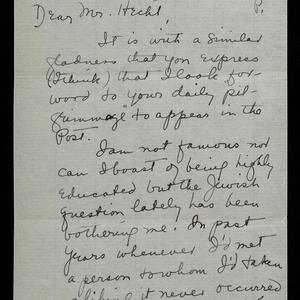 Dear Mr. Hecht, P.
It is with a similar
gladness that you express
(I think) that I look for-
word to yours daily pil-
grimmage" to appear in the
Post.
I am not famous nor
can I boast of being highly
educated but the Jewish
question lately has been
bothering me. In past
years whenever I'd met
a person to whom I'd taken
a liking it never occurred